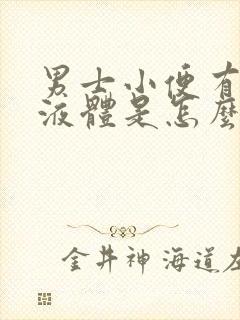 男士小便有
液體是怎麼
金井神海道左